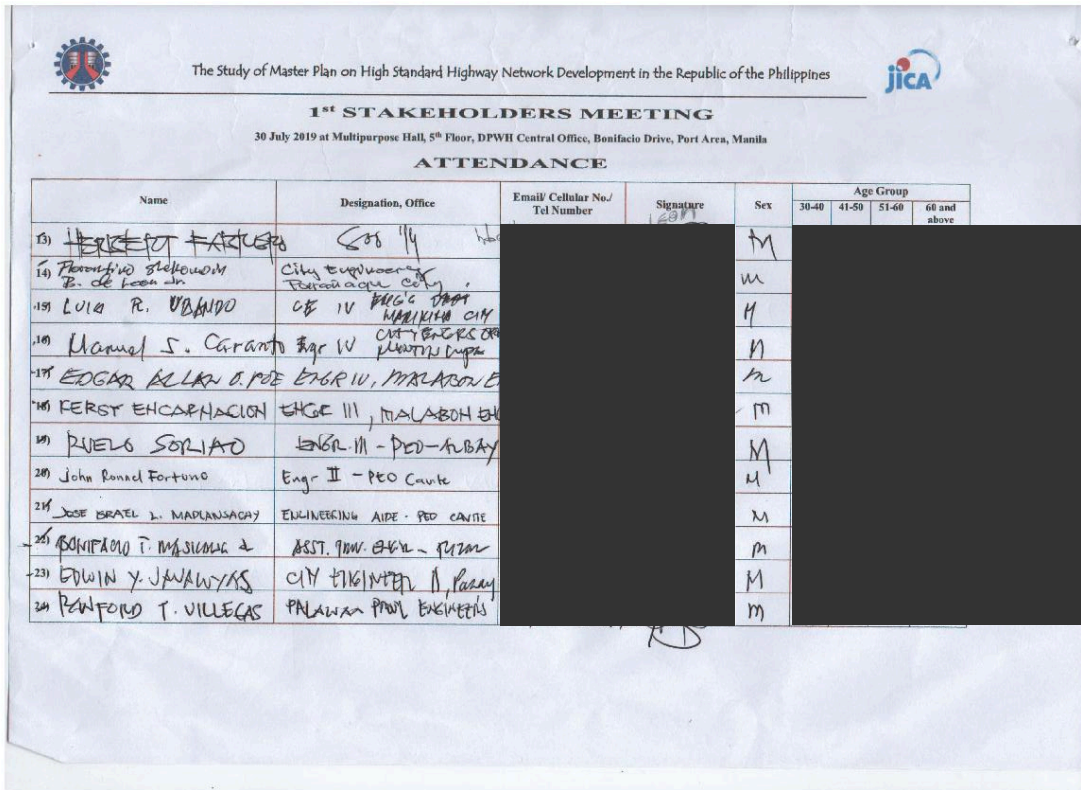 The Study of Master Plan on High Standard Highway Network Development in the Republic of the Philippines
jICA
1st STAKEHOLDERS MEETING
30 July 2019 at Multipurpose Hall, 5th Floor, DPWH Central Office, Bonifacio Drive, Port Area, Manila
ATTENDANCE
Name Designation, Office Email/ Cellular No./ Tel Number Signature Sex Age Group
30-40 41-50 51-60 60 and above
13) M
14) B. de Leon Jr. City Engineering Parañaque City. M
15) LUIS R. CE IV ENG'G DEPT MARIKINA CITY M
16) Manuel S. Caranto Engr IV M
17) EDGAR ALLAN O. POE ENGR IV, MALABON E M
18) FERST ENCARNACION ENGR III, MALABON ENG M
19) RUELO SORIAO ENGR. III - PEO - ALBAY M
20) John Ronnel Fortuno Engr II - PEO Cavite M
21) JOSE ISRAEL L. ENGINEERING AIDE - PEO CAVITE M
22) BONIFACIO T. ASST. PROV. ENGR. - RIZAL M
23) EDWIN Y. CITY ENGINEER II, Pasay M
24) T. VILLEGAS PALAWAN M